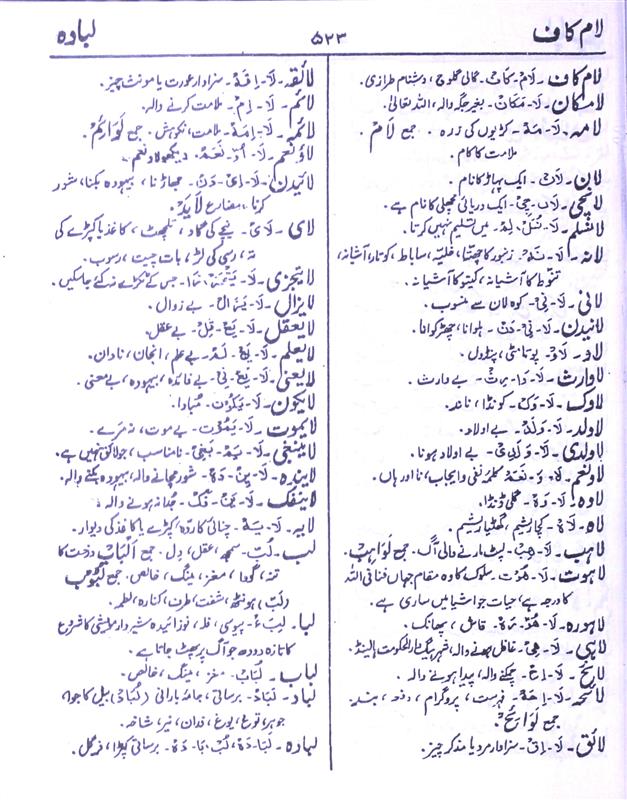 لام کاف
۵۲۳
لبادہ
لام کاف۔ لَام۔ کَاف۔ گالی گلوچ، دشنام طرازی۔
لامکان۔ لَا۔ مَکَان۔ بغیر جگہ والہ، اللہ تعالیٰ۔
لامہ۔ لَا۔ مَۃ۔ کڑیوں کی زرہ۔ جمع لَامٌ۔
ملامت کا کام۔
لان۔ لَان۔ ایک پہاڑ کا نام۔
لانچی۔ ایک دریائی مچھلی کا نام ہے۔
لانسلم۔ لَا۔ نُسَلّ۔ لِمُ۔ میں تسلیم نہیں کرتا۔
لانہ۔ لَا۔ نَہ۔ زنبور کا چھتا، ساباط، آشیانہ،
کا آشیانہ، کبتو کا آشیانہ۔
لانی۔ لَا۔ نِی۔ کوہ لان سے منسوب۔
لانیدن۔ لَا۔ نِی۔ دَن۔ ہلوانا، چھڑکوانا۔
لاو۔ لَاوُ۔ پوتا مٹی، پنڈول۔
لاوارث۔ لَا۔ وَا۔ رِث۔ بے وارث۔
لاوک۔ لَا۔ وَک۔ کونڈا، ناند۔
لاولد۔ لَا۔ وَلَدْ۔ بے اولاد۔
لاولدی۔ لَا۔ وَلَدِی۔ بے اولاد ہونا۔
لاونعم۔ لَا۔ وَ۔ نَعَم۔ کلمہ نفی و ایجاب، نا اور ہاں۔
لاوہ۔ لَا۔ وَہ۔ گلی ڈنڈا۔
لاہ۔ لَاہ۔ کچا ریشم، گھٹیا ریشم۔
لاہب۔ لَا۔ ہِبْ۔ لپٹ مارنے والی آگ۔ جمع لَوَاہِبْ۔
لاہوت۔ لَا۔ ہُوت۔ سلوک کا وہ مقام جہاں فنا فی اللہ
کا درجہ ہے، حیات جو اشیا میں ساری ہے۔
لاہورہ۔ لَا۔ ہُو۔ رَہ۔ قاش، پھانک۔
لاہی۔ لَا۔ ہِی۔ غافل ہونے والہ، شہر ہیگ دارالحکومت ہالینڈ۔
لائح۔ لَا۔ اِح۔ چمکنے والہ، پیدا ہونے والہ۔
لائحہ۔ لَا۔ اِحَہ۔ فہرست، پروگرام، دفعہ، بند۔
جمع لَوَائِحْ۔
لائق۔ لَا۔ اِق۔ سزاوار مرد یا مذکر چیز۔
لائقہ۔ لَا۔ اِقَۃ۔ سزاوار عورت یا مونث چیز۔
لائم۔ لَا۔ اِم۔ ملامت کرنے والہ۔
لائمہ۔ لَا۔ اِمَۃ۔ ملامت، نکوہش۔ جمع لَوَائِمُ۔
لاؤنعم۔ لَا۔ اُوْ۔ نَعَمْ۔ دیکھو لاونعم۔
لائیدن۔ لَا۔ اِی۔ دَن۔ بیہودہ بکنا، شور
کرنا، مضارع لَایَد۔
لای۔ لَای۔ نیچے کی گاد، تلچھٹ، کاغذ یا کپڑے کی
تہ، رسی کی لڑ، بات چیت، رسوب۔
لایتجزی۔ جس کے ٹکڑے نہ کئے جا سکیں۔
لایزال۔ لَا۔ یَزَال۔ بے زوال۔
لایعقل۔ لَا۔ یَعْ۔ قِلْ۔ بے عقل۔
لایعلم۔ لَا۔ یَعْ۔ لَمْ۔ بے علم، انجان، نادان۔
لایعنی۔ لَا۔ یَعْ۔ نِی۔ بے فائدہ، بیہودہ، بے معنی۔
لایکون۔ لَا۔ یَکُوْن۔ مبادا۔
لایموت۔ لَا۔ یَمُوْت۔ بے موت، نہ مرے۔
لاینبغی۔ لَا۔ یَنْ۔ بَغِی۔ نامناسب، جو لائق نہیں ہے۔
لایندہ۔ لَا۔ یِنْ۔ دَہ۔ شور مچانے والہ، بیہودہ بکنے والہ۔
لاینفک۔ لَا۔ یَنْ۔ فَک۔ جدا نہ ہونے والہ۔
لایہ۔ لَا۔ یَہ۔ چنائی کا ردّہ، کپڑے یا کاغذ کی دیوار۔
لب۔ لُبّ۔ سمجھ، عقل، دل۔ جمع اَلْبَاب درخت کا
تنہ، گودا، مغز، مینگ، خالص۔ جمع لُبُوْب
(لَب) ہونٹھ، شفت، طرف، کنارہ، لطمہ۔
لبا۔ لِبَأ۔ پیوسی، فلہ، نوزائیدہ شیردار مویشی کا شروع
کا تازہ دودھ جو آگ پر پھٹ جاتا ہے۔
لباب۔ لُبَاب۔ مغز، مینگ، خالص۔
لباد۔ لَبَادْ۔ برساتی، جامہ بارانی (لُبَاد) بیل کا جوا،
جوہر، توغ، یوغ، فدان، نیر، شاخہ۔
لبادہ۔ لَبَادَہ، لَبْ۔ بَا۔ دَہ۔ برساتی کپڑا، فرگل۔